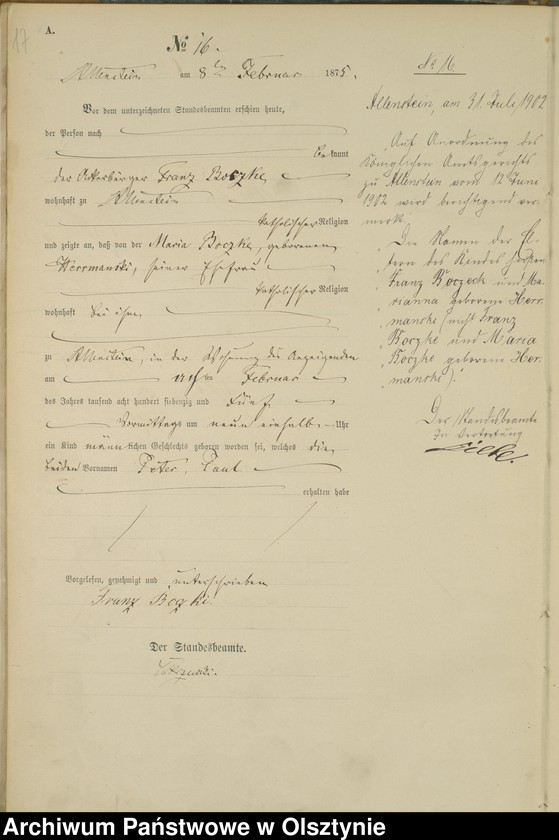 17
A.
No 16.
Allenstein am 8ten Februar 1875.
Vor dem unterzeichneten Standesbeamten erschien heute,
der Person nach
bekannt
der Ackerbürger Franz Boczke,
wohnhaft zu Allenstein
katholischer Religion
und zeigte an, daß von der Maria Boczke, geborenen
Herrmanski, seiner Ehefrau
katholischer Religion
wohnhaft bei ihm
zu Allenstein, in der Wohnung des Anzeigenden
am acht Februar
des Jahres tausend acht hundert siebenzig und Fünf
Vormittags um neun einhalb Uhr
ein Kind männlichen Geschlechts geboren worden sei, welches die
beiden Vornamen Peter, Paul
erhalten habe
Vorgelesen, genehmigt und unterschrieben
Franz Boczki.
Der Standesbeamte.
No 16.
Allenstein, am 31. Juli 1902
Auf Anordnung des
Königlichen Amtsgerichts
zu Allenstein vom 12 Juni
1902 wird berichtigend ver-
merkt:
Die Namen der El-
tern des Kindes heißen
Franz Boczeck und Ma-
rianna geborene Herr-
manske (nicht Franz
Boczke und Maria
Boczke geborene Her-
manske).
Der Standesbeamte
In Vertretung
Archiwum Państwowe w Olsztynie